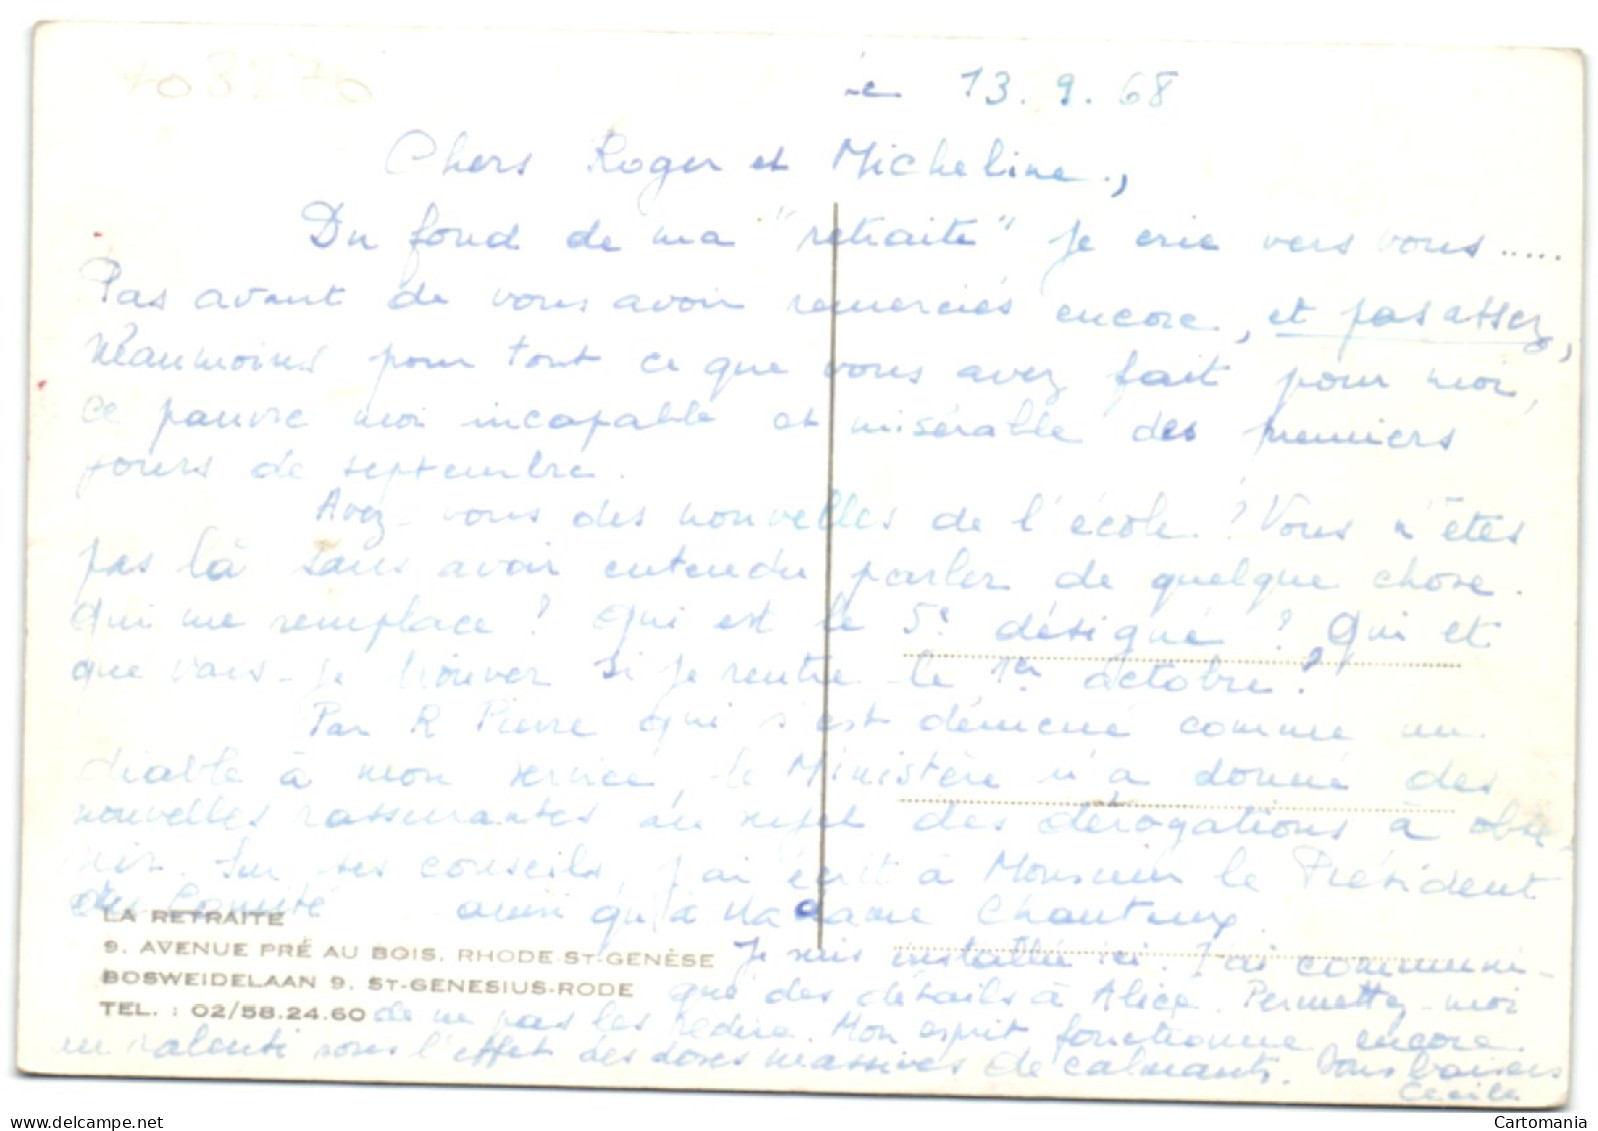 108270
Le 13.9.68
Chers Roger et Micheline,
Du fond de ma "retraite" je crie vers vous.....
Pas avant de vous avoir remerciés encore, et pas assez,
néanmoins pour tout ce que vous avez fait pour moi,
ce pauvre moi incapable et misérable des premiers
jours de septembre.
Avez-vous des nouvelles de l'école ? Vous n'êtes
pas là sans avoir entendu parler de quelque chose.
Qui me remplace ? Qui est le 5e désigné ? Qui et
que vais-je trouver si je rentre le 1er octobre ?
Par R Pierre qui s'est démené comme un
diable à mon service, le Ministère m'a donné des
nouvelles rassurantes au sujet des dérogations à obte-
nir. Sur ses conseils, j'ai écrit à Monsieur le Président
du Comité ainsi qu'à Madame
LA RETRAITE
9, AVENUE PRÉ AU BOIS, RHODE-ST-GENÈSE
BOSWEIDELAAN 9, ST-GENESIUS-RODE
TEL. : 02/58.24.60
Je suis installée ici. J'ai communi-
qué des détails à Alice. Permettez-moi
de ne pas les redire. Mon esprit fonctionne encore
au ralenti sous l'effet des doses massives de calmants. Bons baisers
Cécile
www.delcampe.net
Cartomania